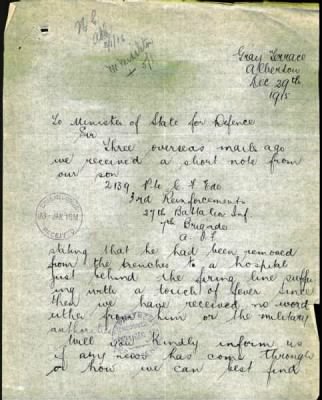 Gray Terrace
Alberton
Dec 29th
1915
To Minister of State for Defence
Sir
Three overseas mails ago
we received a short note from
our son
2139 Pte C F Ede
3rd Reinforcements
27th Battalion Inf.
7th Brigade
A. I. F.
stating that he had been removed
from the trenches to a hospital
just behind the firing line suffering
with a touch of fever since
then we have received no word
either from him or the military
Will you Kindly inform us
if any news has come through
or how we can best find